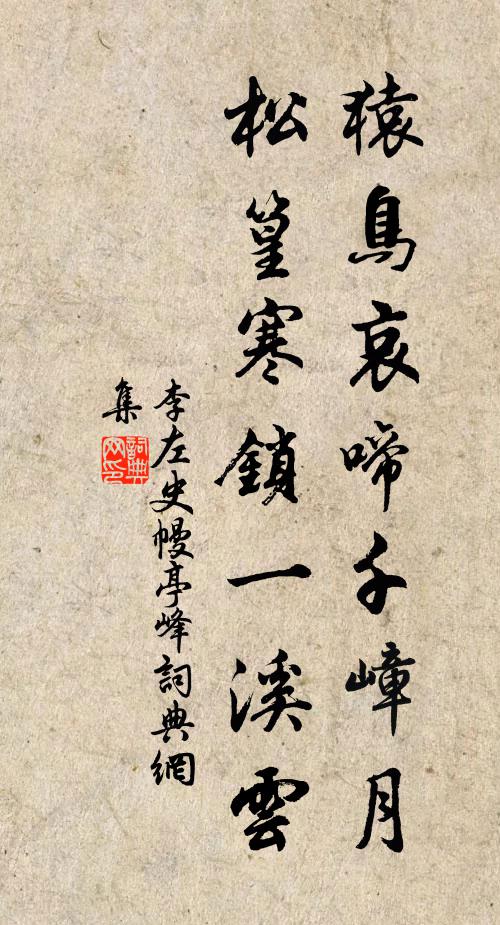 猿鳥哀啼千嶂月
松篁寒鎖一溪雲
李左史幔亭峰詞典網
集
詞典網印